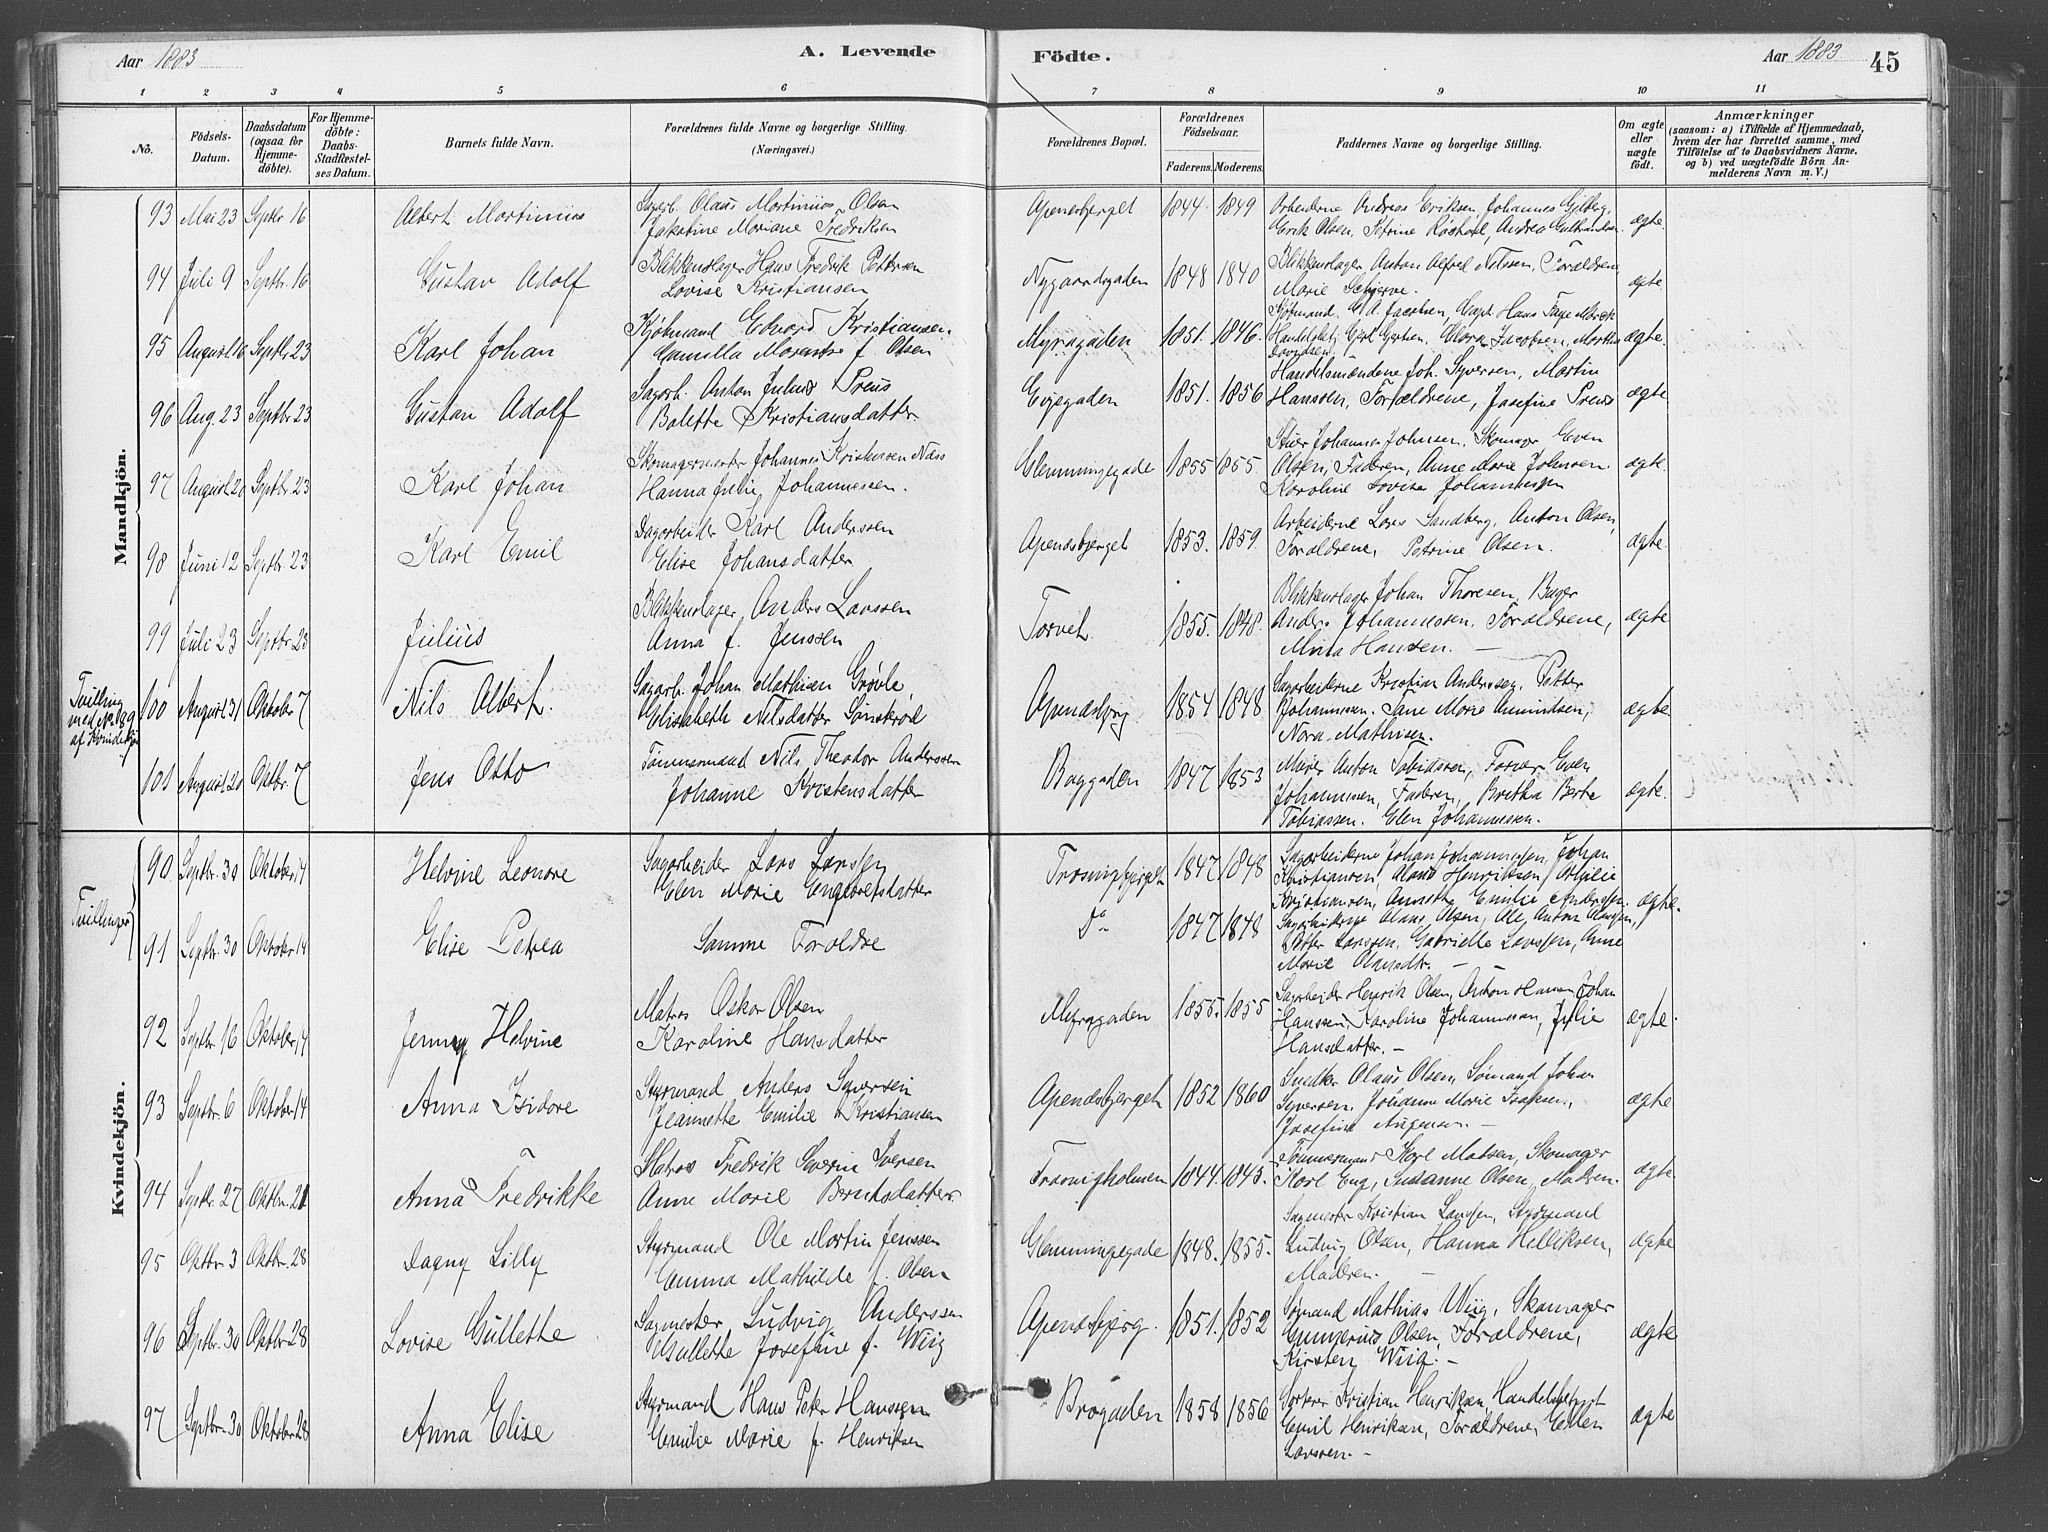 Aar 1883
A. Levende
Födte.
Aar 1883
45
1 2 3 4 5 6 7 8 9 10 11
No.
Födsels-Datum.
Daabsdatum (ogsaa for Hjemmedöbte).
For Hjemmedöbte: Daabs-Stadfæstelses Datum.
Barnets fulde Navn.
Forældrenes fulde Navne og borgerlige Stilling. (Næringsvei.)
Forældrenes Bopæl.
Forældrenes Födselsaar.
Faderens. Moderens.
Faddernes Navne og borgerlige Stilling.
Om ægte eller uægte født.
Anmærkninger
(saasom: a) i Tilfælde af Hjemmedaab, hvem der har forrettet samme, med Tilföielse af to Daabsvidners Navne, og b) ved uægtefödte Börn Anmelderens Navn m. V.)
Mandkjön.
93 Mai 23 Septbr 16 Albert Martinius
Sagarb. Olaus Martinius Olsen
Jakobine Mariane Fredriksen
Apenesbjerget 1844 1849
Arbeiderne Andreas Eriksen, Johannes
Erik Olsen, Petrine
ægte
94 Juli 9 Septbr. 16 Gustav Adolf
Blikkenslager Hans Fredrik Pettersen
Lovise Kristiansen
Nygaardsgaden 1848 1840
Blikkenslager Anton Alfred Nilssen, Forældrene
Marie
ægte
95 August 16 Septbr 23 Karl Johan
Kjøbmand Edvard Kristiansen
Camilla f. Olsen
Myragaden 1851. 1846.
Kjøbmand Jacobsen, Capt. Hans
Jacobsen,
Davidsen.
ægte.
96 Aug. 23 Septbr 23 Gustav Adolf
Sagarb. Anton Julius Preus
Bolette Kristiansdatter
Evjegaden 1851. 1856
Handelsmændene Joh. Syversen, Martin
Hanssen, Forældrene, Josefine Preus
ægte
97 August 20 Septbr 23 Karl Johan
Skomagermester Johannes Kristensen Næss
Hanna Julie Johannessen.
Glemmingegade 1855 1855.
Johannes Johnsen, Skomager Even
Olsen, Faderen, Anne Marie Johnsen.
Karoline Lovise Johannessen
ægte.
98 Juni 12 Septbr. 23 Karl Emil
Dagarbeider Karl Anderssen
Elise Johansdatter
Apenesbjerget 1853. 1859.
Arbeiderne Lars Sandberg, Anton Olsen,
Forældrene, Petrine Olsen.
ægte.
99 Juli 23 Septbr 23 Julius
Blikkenslager Anders Larssen
Anna f. Jenssen
Torvet 1855. 1848.
Blikkenslager Johan Thoresen, Bager
Anders Johannessen, Forældrene,
Hansen.
ægte
Tvilling med No. 89 af Kvindekjøn
100 August 31 Oktobr 7 Nils Albert.
Sagarb. Johan Mathisen Grøvle,
Elisabeth Nilsdatter
Apenesbjerg 1854 1848
Sagarbeiderne Kristian Anderssen, Petter
Johannessen, Jane Marie Amundsen,
Nora Mathisen.
ægte
101 August 20 Oktbr. 7 Jens Otto
Tømmermand Nils Theodor Anderssen
Johanne Kristensdatter
Baggaden 1847 1853
Murer Anton Tobiassen, Even
Johannessen, Faderen, Berte
Tobiassen. Elen Johannessen.
ægte.
Kvindekjön.
Tvillinger
90 Septbr. 30 Oktober 14 Helvine Leonore
Sagarbeider Lars Larssen
Elen Marie Engbretsdatter
Trosvigbjerget 1847 1848
Sagarbeiderne Johan Johannessen, Johan
Kristiansen, Olaus Henriksen, Othilie
Kristiansen, Annette Emilie Andersen.
ægte.
91 Septbr. 30 Oktober 14 Elise Petrea
Samme Forældre
Do 1847 1848
Sagarbeiderne Olaus Olsen, Ole Anton Olausen,
Petter Larssen, Gabrielle Larssen, Anne
Marie Olausdtr. —
92 Septbr. 16 Oktober 14 Jenny Helvine
Matros Oskar Olsen
Karoline Hansdatter
Myragaden 1855. 1855
Sagarbeider Henrik Olsen, Anton Hansen, Johan
Hanssen, Karoline Johannessen, Julie
Hansdatter. —
ægte.
93 Septbr. 6 Oktober 14 Anna Isidore
Styrmand Anders Syversen
Jeannette Emilie Kristiansen
Apenesbjerget 1852 1860
Snedker Olaus Olsen, Sømand Johan
Syversen, Johanne Marie Isaksen,
Josefine —
ægte
94 Septbr. 27 Oktbr. 21 Anna Fredrikke
Matros Fredrik Severin Iversen
Anne Marie Berntsdatter
Trosvigholmen 1844. 1845.
Tømmermand Karl Madsen, Skomager
Karl Eng, Susanne Olsen, Madren.
ægte.
95 Oktbr 3 Oktbr. 28 Dagny Lilly
Styrmand Ole Martin Jenssen
Emma Mathilde f. Olsen
Glemmingegade 1848. 1855.
Sagmester Kristian Larssen, Styrmand
Ludvig Olsen, Hanna Helliksen,
Madren. —
ægte
96 Septbr. 30 Oktbr 28 Lovise Gullette
Sagmester Ludvig Anderssen
Gullette Josefine f. Wiig
Apenesbjerg. 1851. 1852
Sømand Mathias Wiig, Skomager
Gunnerius Olsen, Forældrene,
Kirsten Wiig. —
ægte
97 Septbr. 30 Oktober 28 Anna Elise
Styrmand Hans Peter Hanssen
Emilie Marie f. Henriksen
Brogaden 1858 1856
Kristian Henriksen, Handelsbetjent
Emil Henriksen, Forældrene, Ellen
Larssen. —
ægte